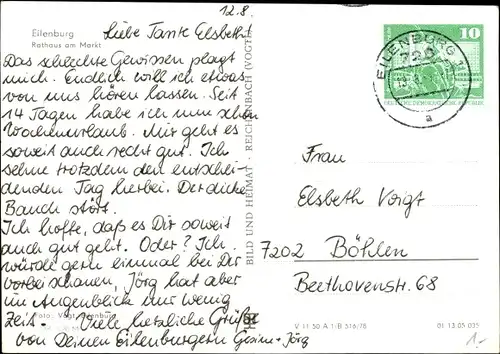 12.8.
Eilenburg
Rathaus am Markt
Liebe Tante Elsbeth!
Das schlechte Gewissen plagt
mich. Endlich will ich etwas
von uns hören lassen. Seit
14 Tagen habe ich nun schon
Wochenurlaub. Mir geht es
soweit auch recht gut. Ich
sehne trotzdem den entschei-
denden Tag herbei. Der dicke
Bauch stört.
Ich hoffe, daß es Dir soweit
auch gut geht. Oder? Ich
würde gern einmal bei Dir
vorbeischauen, Jörg hat aber
im Augenblick nur wenig
Zeit. Viele herzliche Grüße
von Deinen Eilenburgern Gesine + Jörg
Foto: Vogt
BILD UND HEIMAT · REICHENBACH (VOGTL)
V 11 50 A 1/B 516/78
01 13 05 035
10
DEUTSCHE DEMOKRATISCHE REPUBLIK
EILENBURG
a
Frau
Elsbeth Voigt
7202 Böhlen
Beethovenstr. 68
1.-